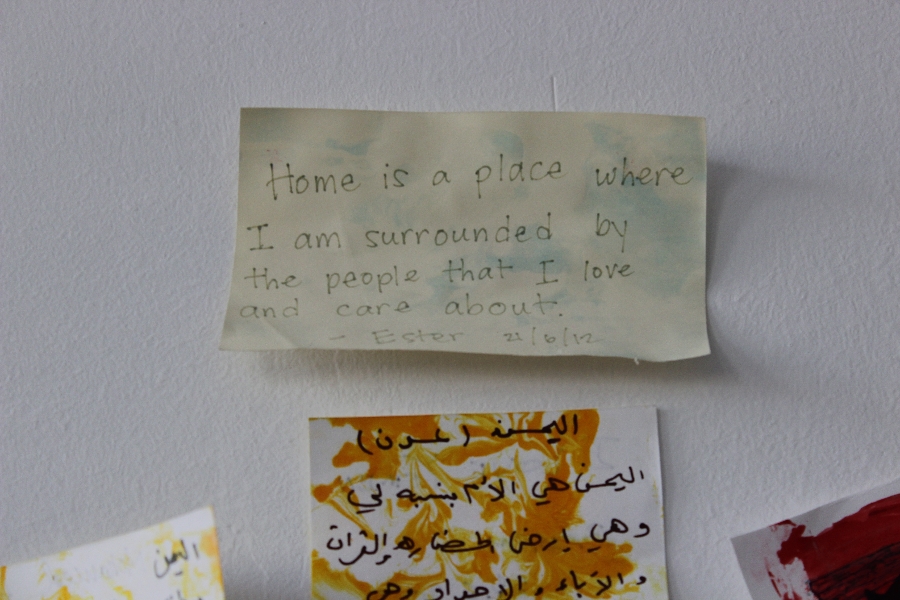 Home is a place where
I am surrounded by
the people that I love
and care about.
- Ester 21/6/12
اليمن (عدن)
اليمن هي الأم بنسبه لي
وهي ارض الحضاره والتراث
والآباء والاجداد وهي
اليمن